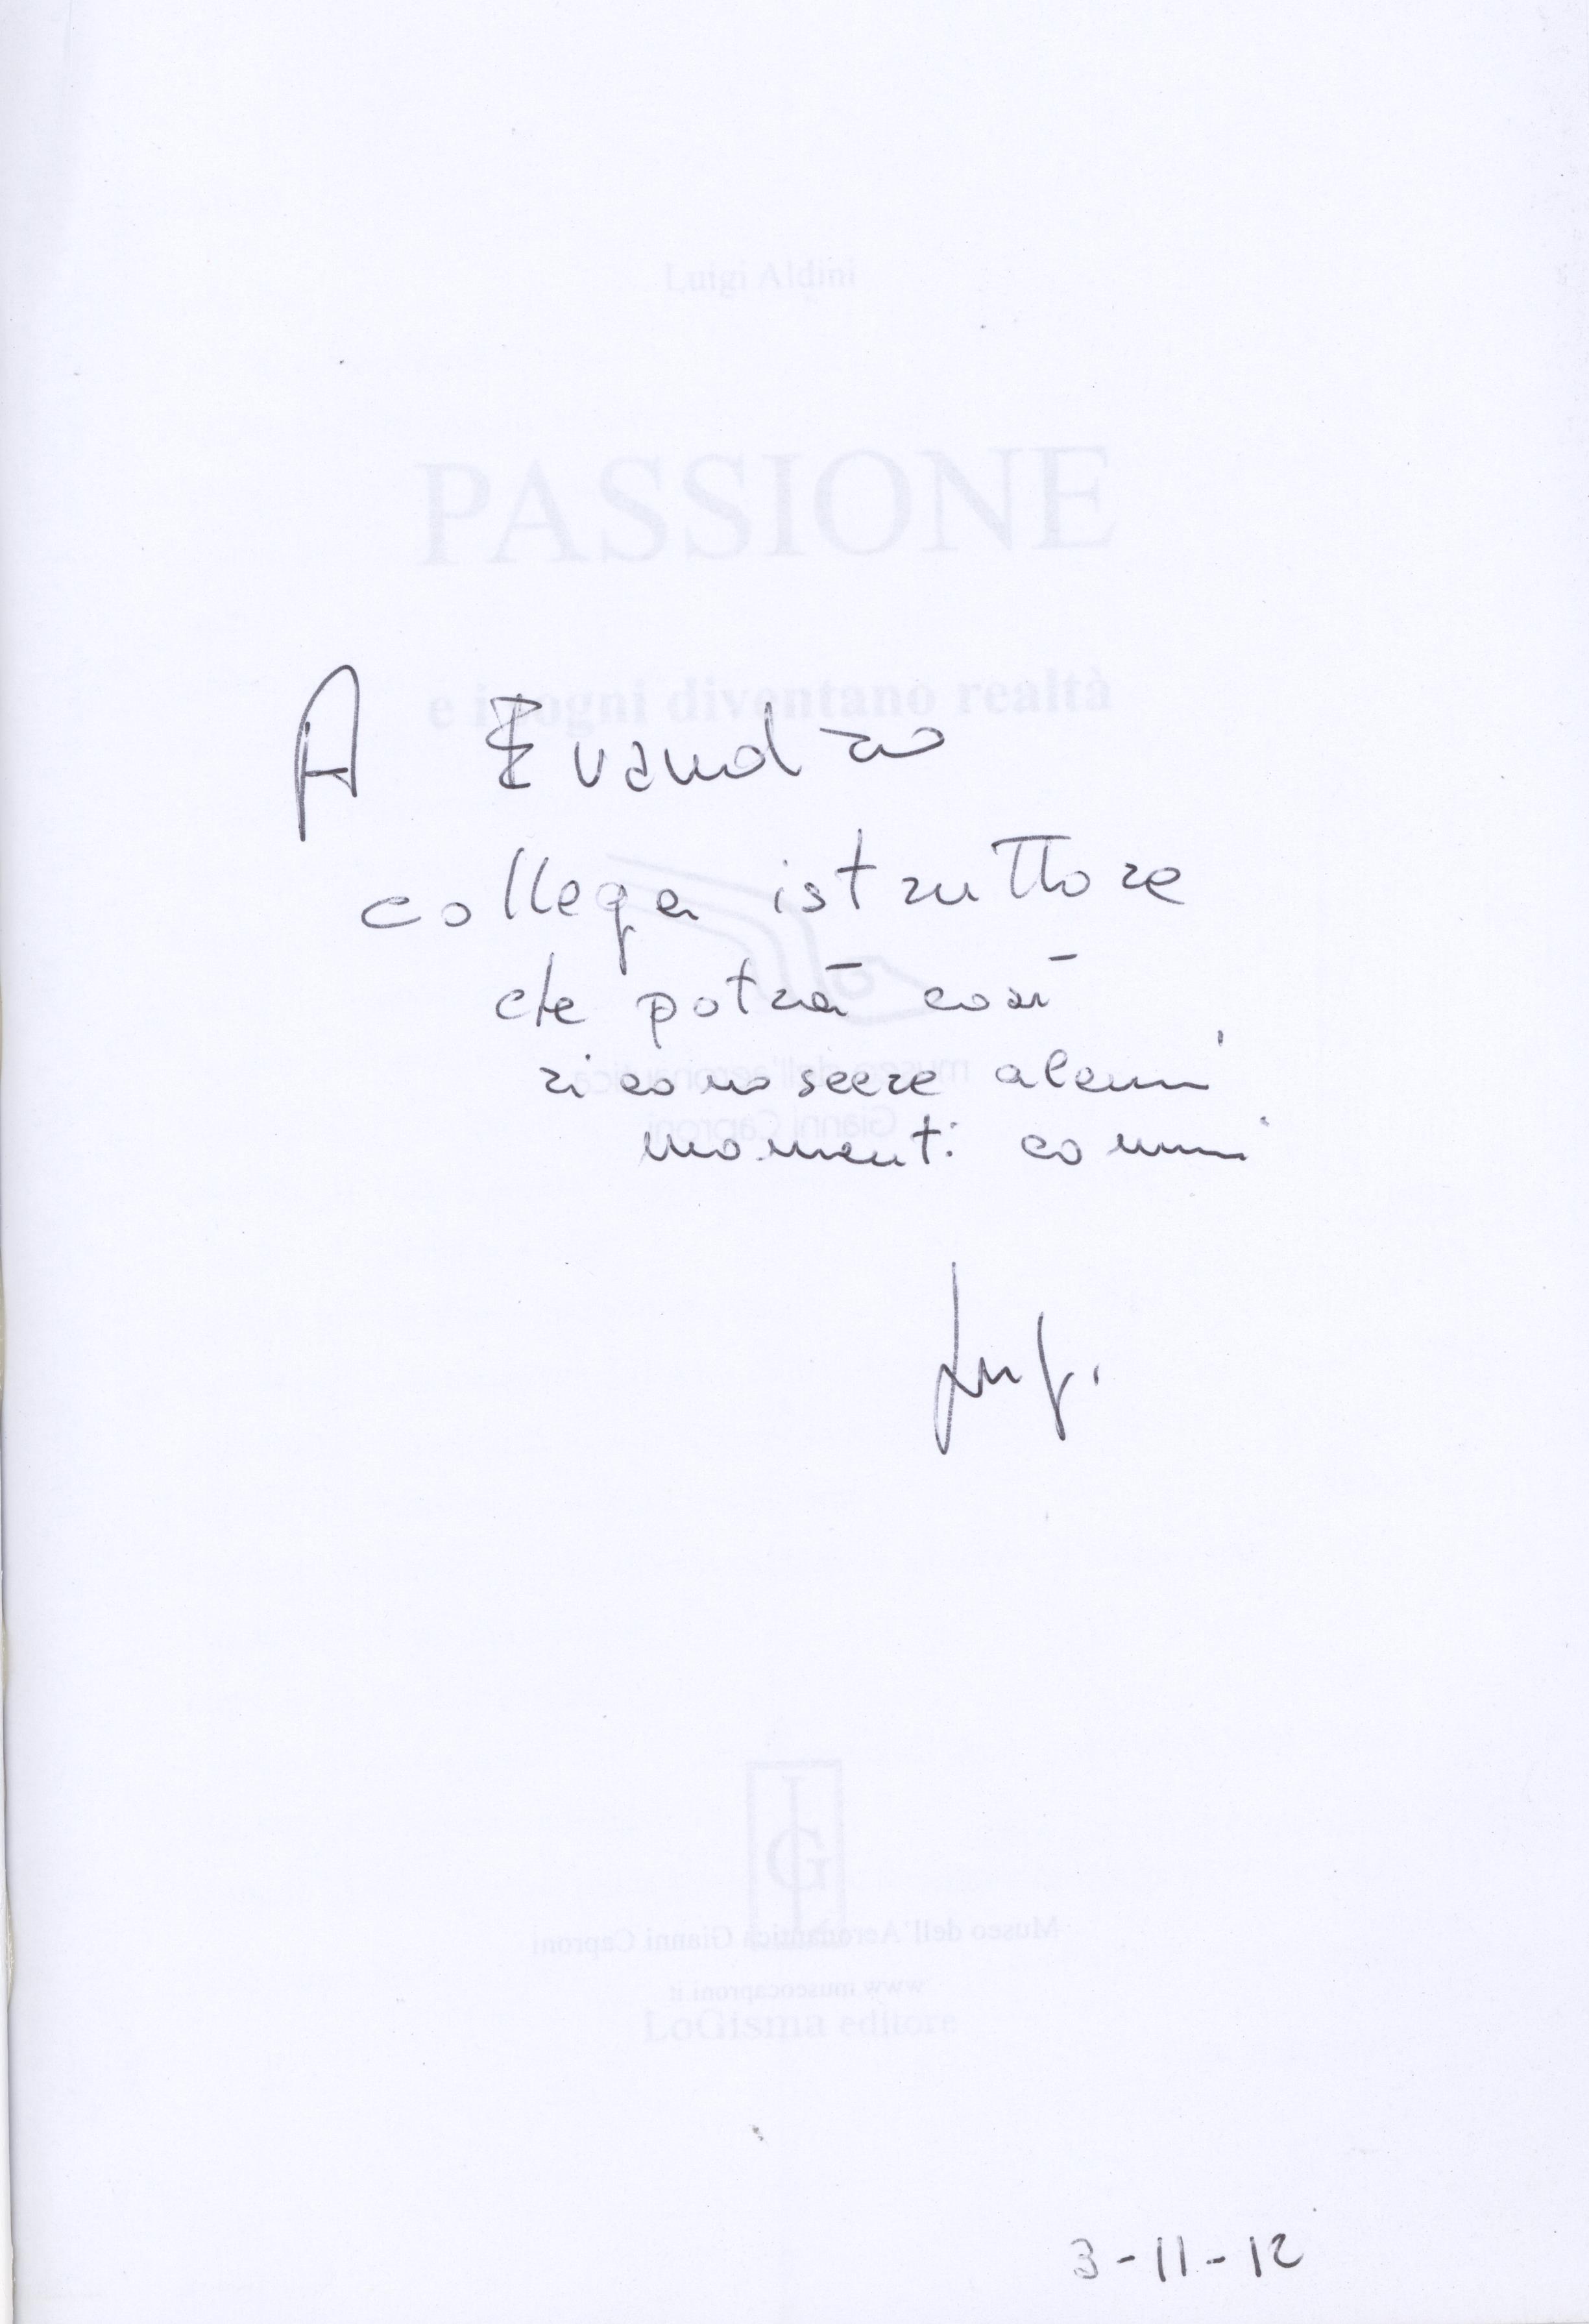 Luigi Aldini
PASSIONE
e i sogni diventano realtà
A Evandro
collega istruttore
che potrà così
riconoscere alcuni
museo dell'aeronautica
Gianni Caproni
momenti comuni
Luigi
LG
Museo dell'Aeronautica Gianni Caproni
www.museocaproni.it
LoGisma editore
3-11-12